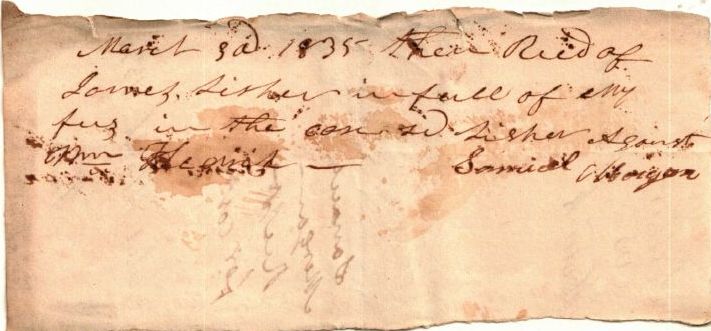 March 3d 1835 then Recd of
James Lisher in full of my
fees in the case sd Lisher Against
Wm Hewit — Samuel Morgan